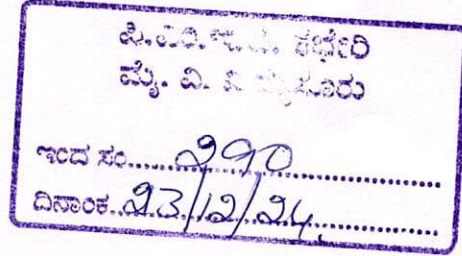 ಕಛೇರಿ
ಮೈ. ವಿ. ವಿ ಮೈಸೂರು
ಇಂದ ಸಂ......290
ದಿನಾಂಕ..23/12/24.